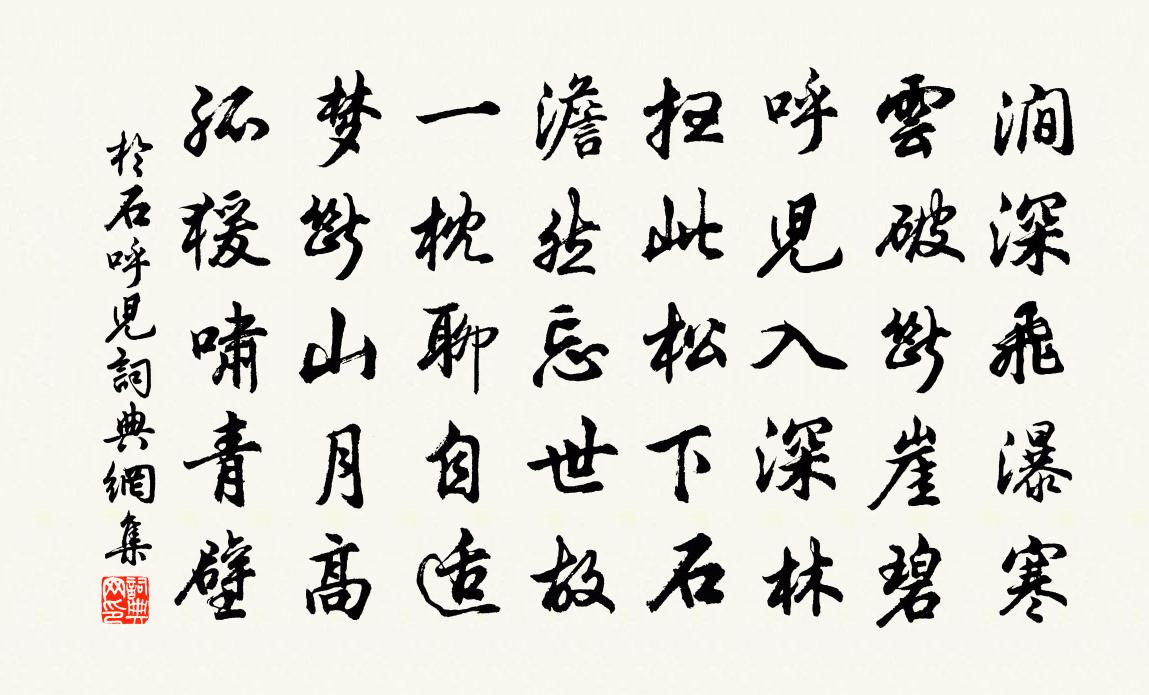 澗深飛瀑寒
雲破斷崖碧
呼兒入深林
掃此松下石
澹然忘世故
一枕聊自适
梦斷山月高
孤猨嘯青壁
於石呼兒詞典網集
詞典网印